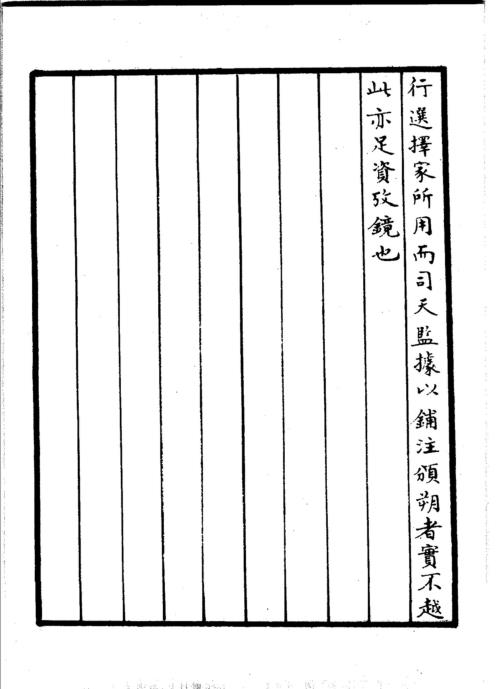 行選擇家所用而司天監據以鋪注頒朔者實不越
此亦足資攷鏡也